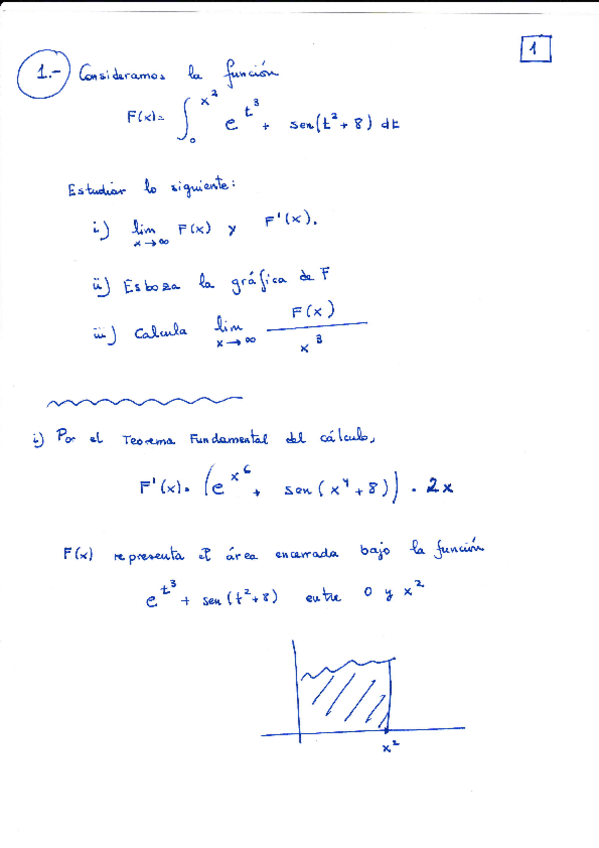 1
1.- Consideramos la función
F(x)= ∫₀^{x²} e^{t³} + sen(t²+8) dt
Estudiar lo siguiente:
i) lim x→∞ F(x) y F'(x).
ii) Esboza la gráfica de F
iii) Calcula lim x→∞ F(x) / x³
i) Por el Teorema Fundamental del cálculo,
F'(x) = (e^{x⁶} + sen(x⁴+8)) · 2x
F(x) representa el área encerrada bajo la función
e^{t³} + sen(t²+8) entre 0 y x²
x²